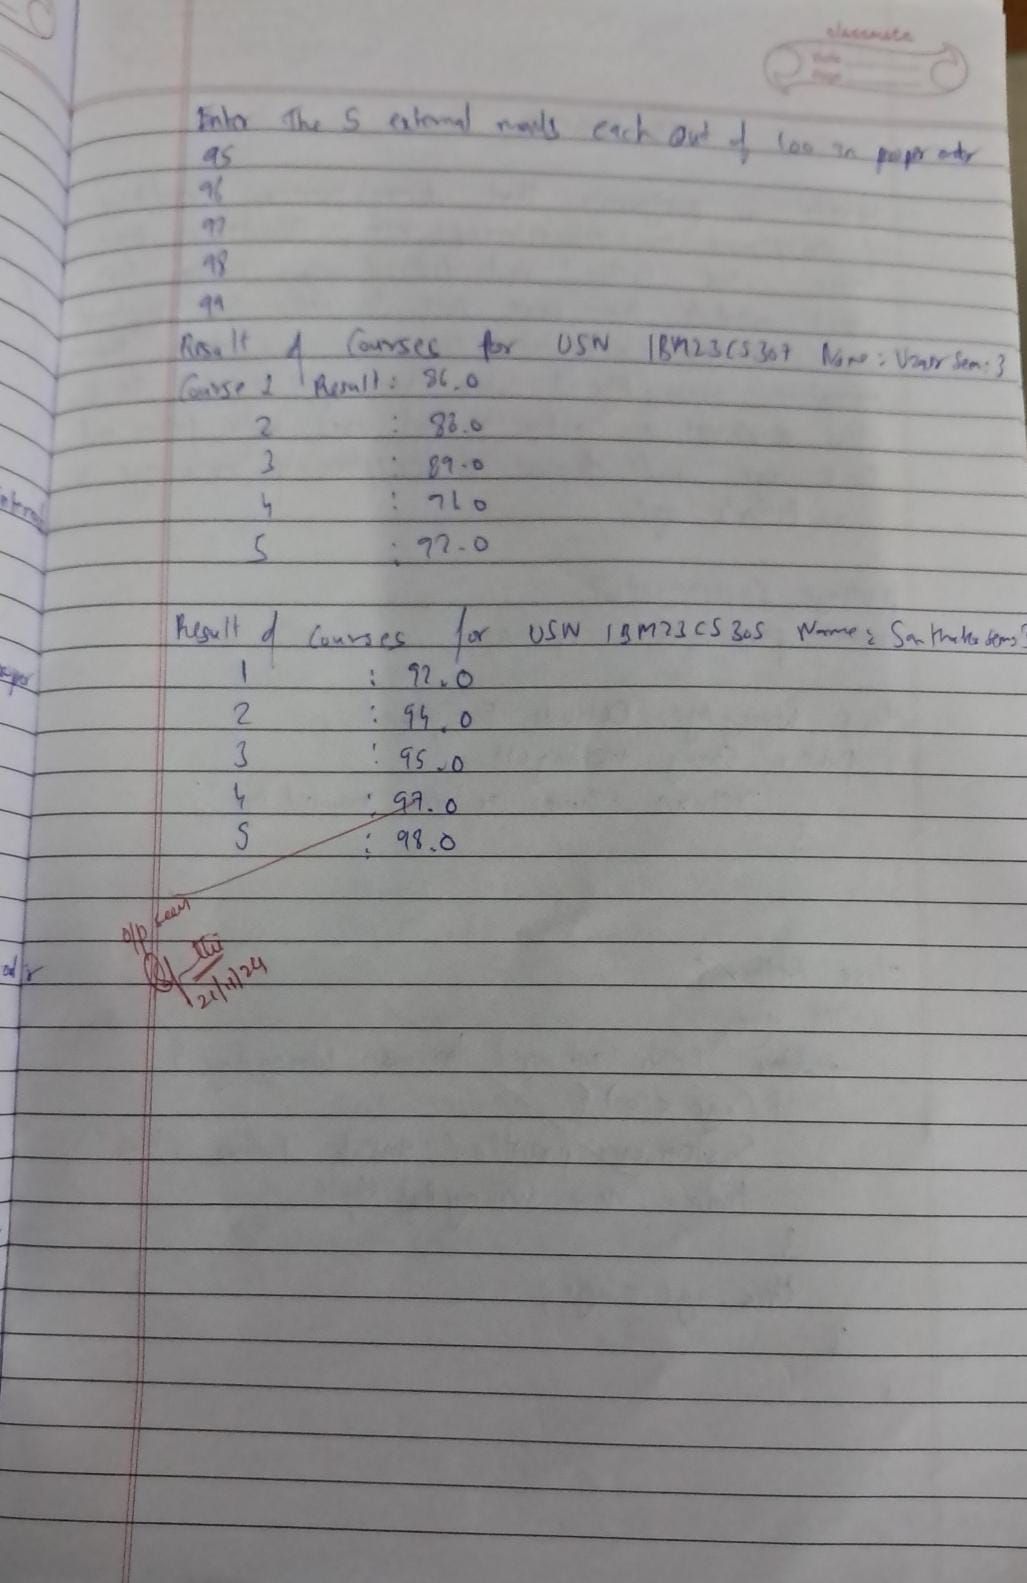 classmate
Date
Page
Enter The 5 external marks each out of 100 in proper order
95
96
97
98
99
Result of Courses for USN 1BM23CS307 Name: Sem: 3
Course 1 Result: 86.0
2 : 88.0
3 : 89.0
4 : 91.0
5 : 92.0
Result of Courses for USN 1BM23CS305 Name: Sem:
1 : 92.0
2 : 94.0
3 : 95.0
4 : 97.0
5 : 98.0
o/p seen
21/11/24